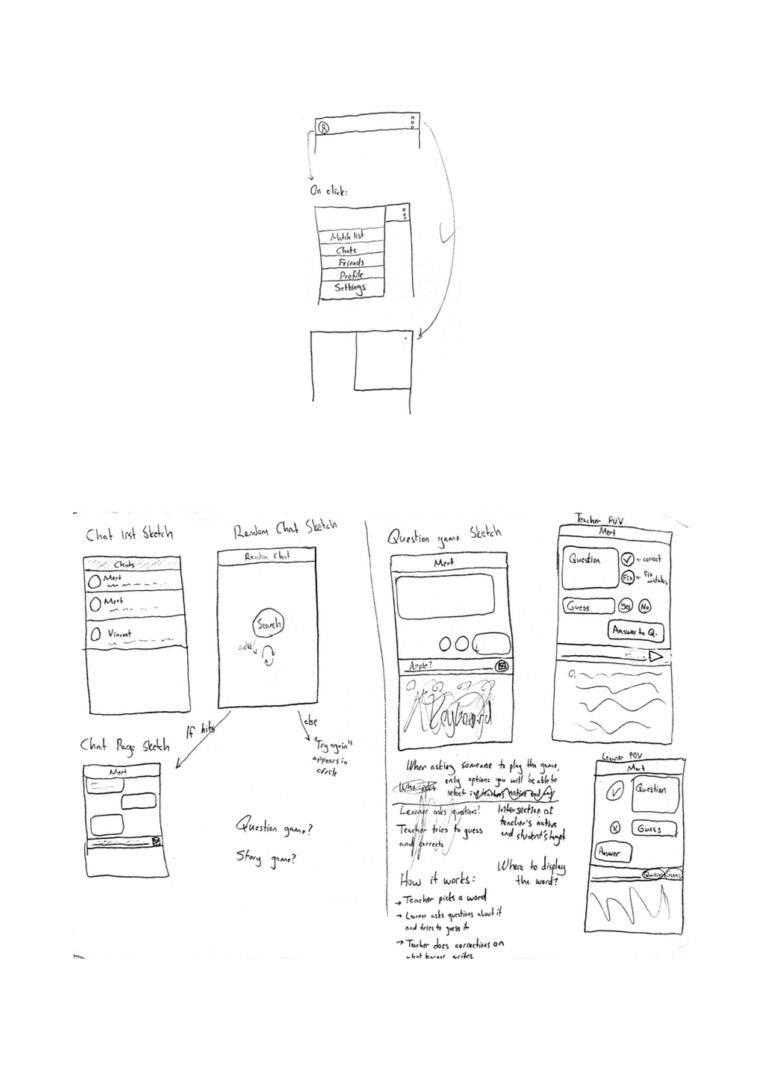 R
On click:
Match list
Chats
Friends
Profile
Settings
Chat list Sketch
Chats
Mert
Mert
Vincent
Random Chat Sketch
Random Chat
Search
If hits
else
"Try again"
appears in
circle
Chat Page Sketch
Mert
Question game?
Story game?
Question game Sketch
Mert
Apple?
Keyboard
Teacher POV
Mert
Question
correct
Fix
fix
mistakes
Guess
Yes
No
Answer to Q.
When asking someone to play the game,
only options you will be able to
select
Intersection of
teacher's native
and student's target
Learner asks questions!
Teacher tries to guess
and corrects
Where to display
the word?
How it works:
→ Teacher picks a word
→ Learner asks questions about it
and tries to guess it
→ Teacher does corrections on
what learner writes.
Learner POV
Mert
Question
Guess
Answer
Question
Guess